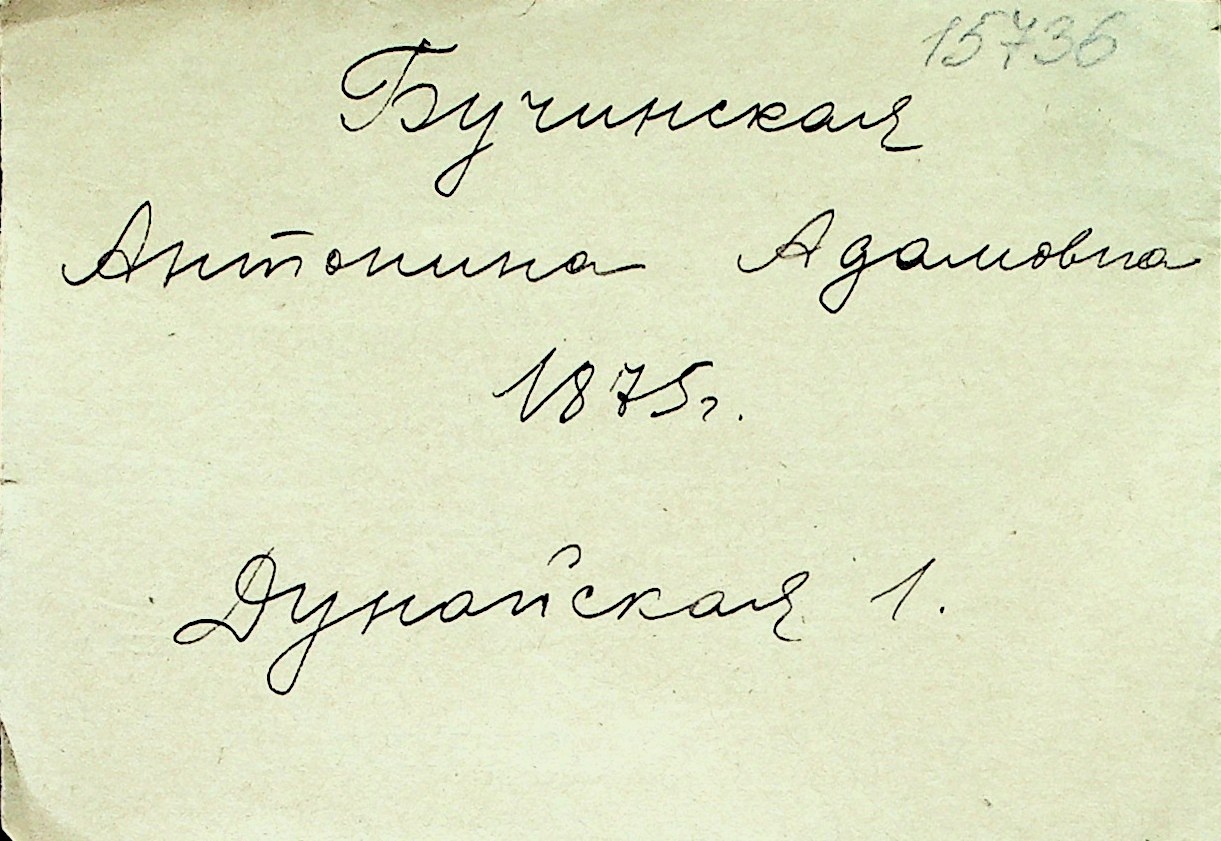 15736
Бучинская
Антонина Адамовна
1875г.
Дунайская 1.